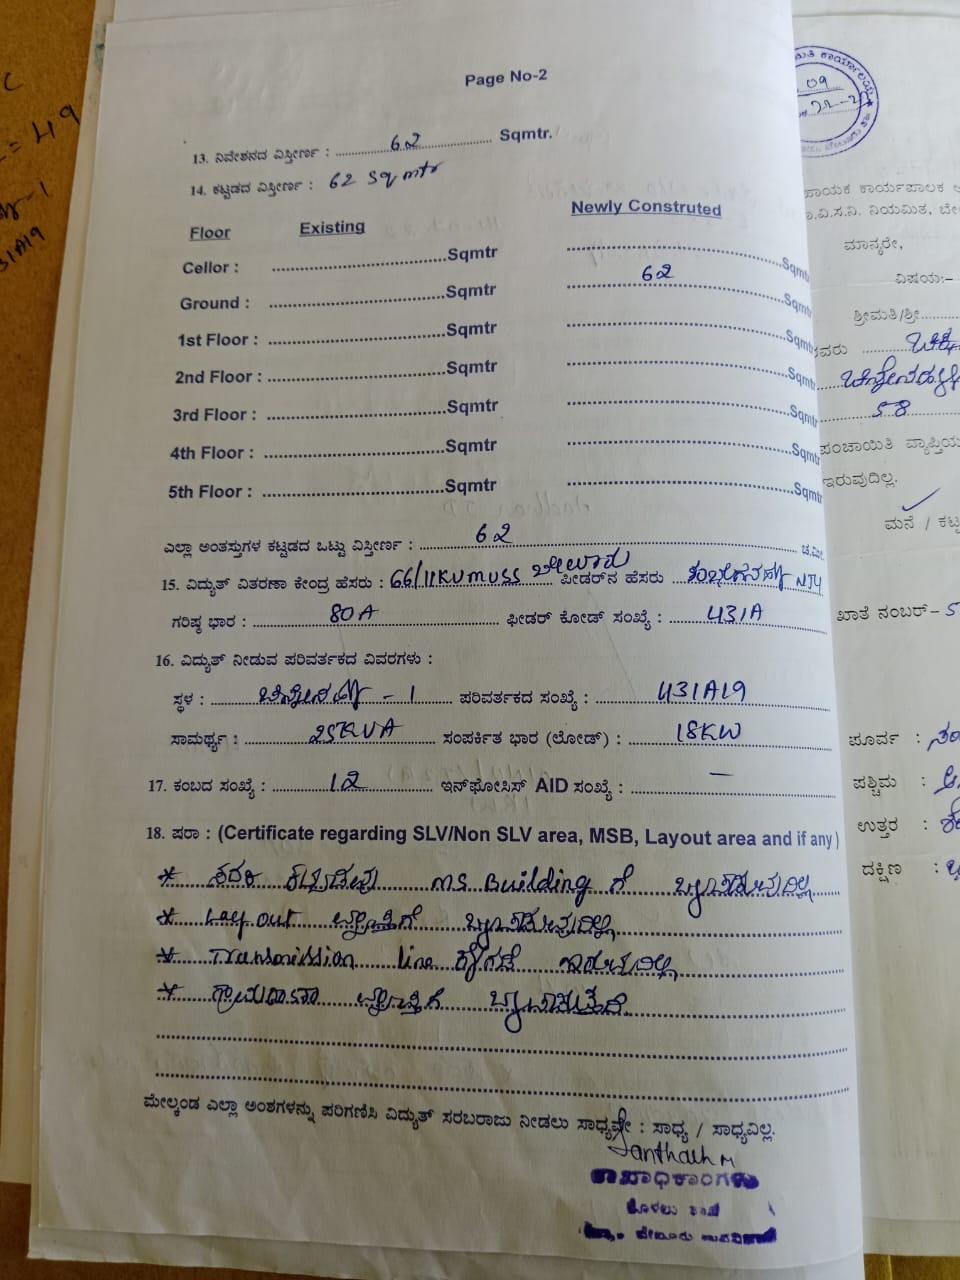 Page No-2
13. ನಿವೇಶನದ ವಿಸ್ತೀರ್ಣ : 62 Sqmtr.
14. ಕಟ್ಟಡದ ವಿಸ್ತೀರ್ಣ : 62 Sq mtr
Floor Existing Newly Construted
Cellor : Sqmtr Sqmtr
Ground : Sqmtr 62 Sqmtr
1st Floor : Sqmtr Sqmtr
2nd Floor : Sqmtr Sqmtr
3rd Floor : Sqmtr Sqmtr
4th Floor : Sqmtr Sqmtr
5th Floor : Sqmtr Sqmtr
ಎಲ್ಲಾ ಅಂತಸ್ತುಗಳ ಕಟ್ಟಡದ ಒಟ್ಟು ವಿಸ್ತೀರ್ಣ : 62 ಚ.ಮೀ.
15. ವಿದ್ಯುತ್ ವಿತರಣಾ ಕೇಂದ್ರ ಹೆಸರು : 66/11KV MUSS ಬೇಲೂರು ಫೀಡರ್‌ನ ಹೆಸರು NJY
ಗರಿಷ್ಠ ಭಾರ : 80A ಫೀಡರ್ ಕೋಡ್ ಸಂಖ್ಯೆ : 431A
16. ವಿದ್ಯುತ್ ನೀಡುವ ಪರಿವರ್ತಕದ ವಿವರಗಳು :
ಸ್ಥಳ : - 1 ಪರಿವರ್ತಕದ ಸಂಖ್ಯೆ : 431A19
ಸಾಮರ್ಥ್ಯ : 25KVA ಸಂಪರ್ಕಿತ ಭಾರ (ಲೋಡ್) : 18KW
17. ಕಂಬದ ಸಂಖ್ಯೆ : 12 ಇನ್‌ಫೋಸಿಸ್ AID ಸಂಖ್ಯೆ : —
18. ಷರಾ : (Certificate regarding SLV/Non SLV area, MSB, Layout area and if any)
* ಸದರಿ ಕಟ್ಟಡವು MS Building ಗೆ ಒಳಪಡುವುದಿಲ್ಲ
* Lay out ವ್ಯಾಪ್ತಿಗೆ ಒಳಪಡುವುದಿಲ್ಲ
* Transmission line ಕೆಳಗಡೆ ಇರುವುದಿಲ್ಲ
* ಗ್ರಾಮಠಾಣಾ ವ್ಯಾಪ್ತಿಗೆ ಒಳಪಡುತ್ತದೆ
ಮೇಲ್ಕಂಡ ಎಲ್ಲಾ ಅಂಶಗಳನ್ನು ಪರಿಗಣಿಸಿ ವಿದ್ಯುತ್ ಸರಬರಾಜು ನೀಡಲು ಸಾಧ್ಯವೇ : ಸಾಧ್ಯ / ಸಾಧ್ಯವಿಲ್ಲ.
ಮಾನ್ಯರೇ,
ವಿಷಯ:-
ಶ್ರೀಮತಿ/ಶ್ರೀ
58
ಇರುವುದಿಲ್ಲ.
ಮನೆ /
ಖಾತೆ ನಂಬರ್-
ಪೂರ್ವ :
ಪಶ್ಚಿಮ :
ಉತ್ತರ :
ದಕ್ಷಿಣ :